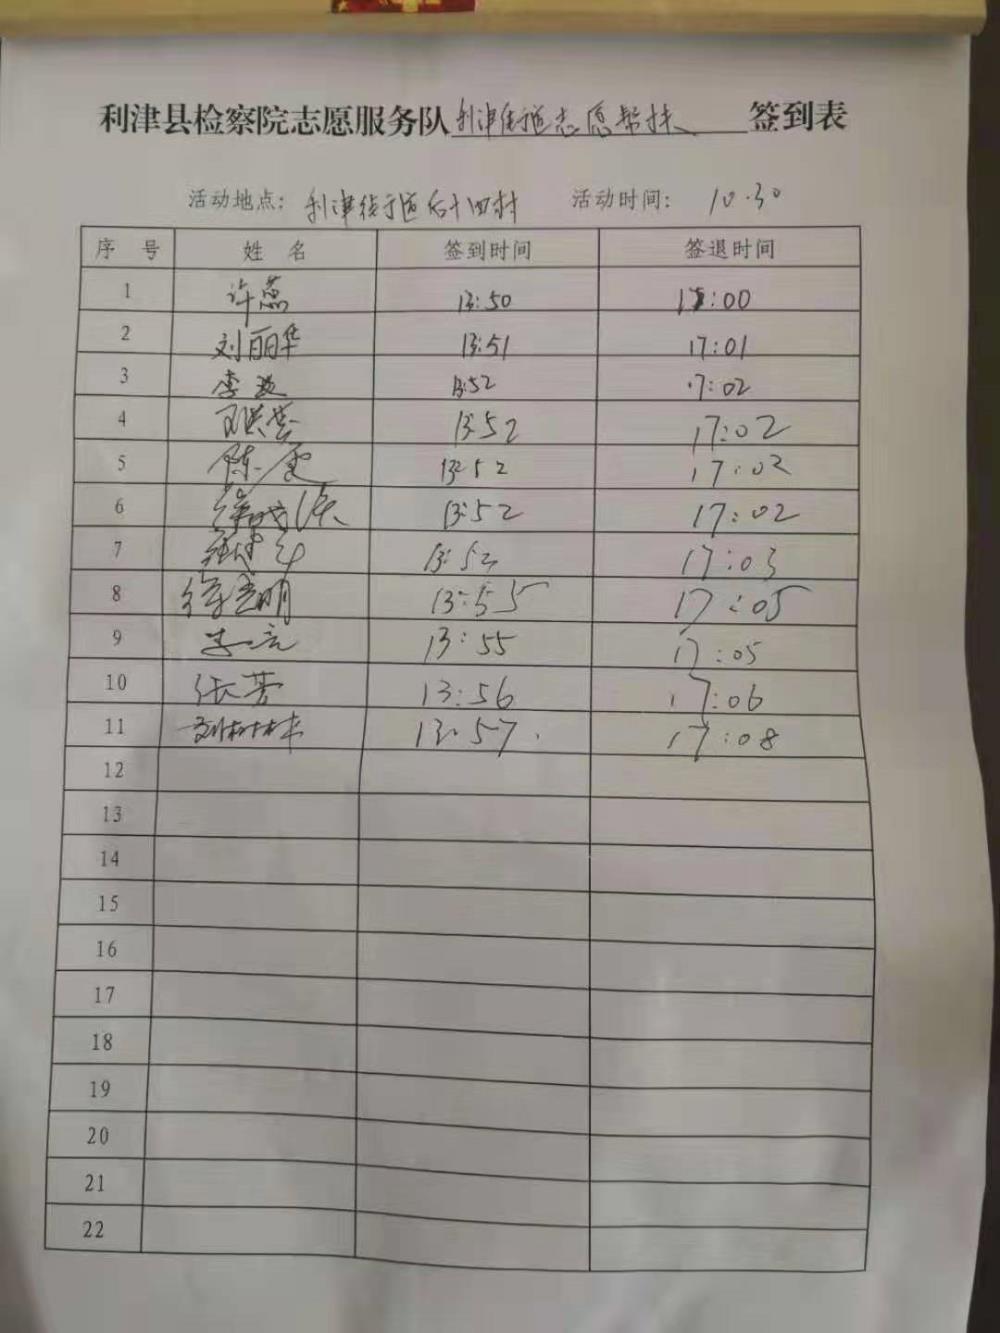 利津县检察院志愿服务队利津街道志愿帮扶签到表
活动地点：利津街道后十四村 活动时间：10.30
序 号 姓 名 签到时间 签退时间
1 许蕊 13:50 17:00
2 刘丽华 13:51 17:01
3 李 13:52 17:02
4 13:52 17:02
5 陈 13:52 17:02
6 13:52 17:02
7 13:53 17:03
8 徐志明 13:55 17:05
9 13:55 17:05
10 张芳 13:56 17:06
11 13:57. 17:08
12
13
14
15
16
17
18
19
20
21
22